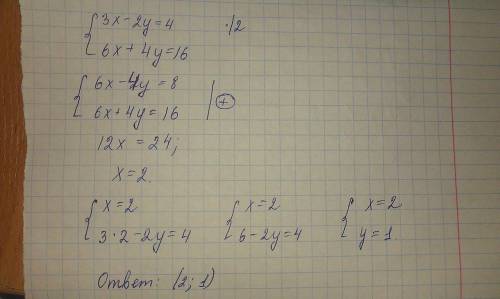 { 3x-2y=4 ·|2
{ 6x+4y=16
{ 6x-4y=8 | ⊕
{ 6x+4y=16
12x=24;
x=2.
{ x=2 { x=2 { x=2
{ 3·2-2y=4 { 6-2y=4 { y=1.
Ответ: (2; 1)